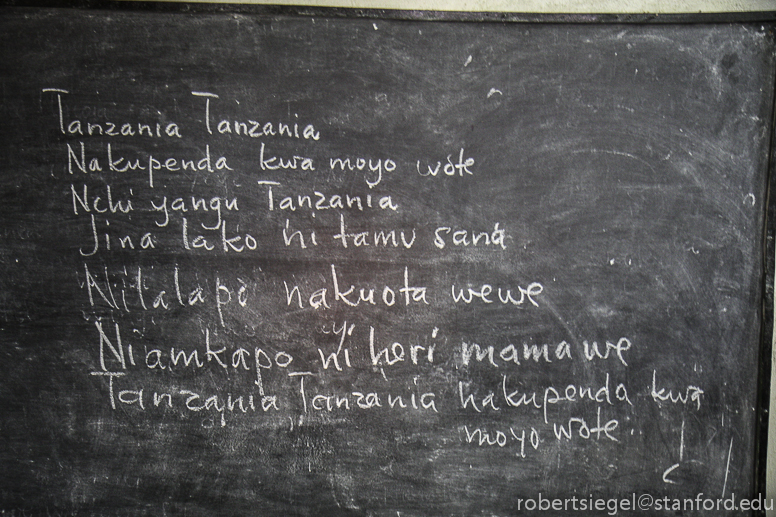 Tanzania Tanzania
Nakupenda kwa moyo wote
Nchi yangu Tanzania
Jina lako ni tamu sana
Nilalapo nakuota wewe
Niamkapo ni heri mama we
Tanzania Tanzania nakupenda kwa
moyo wote..
robertsiegel@stanford.edu